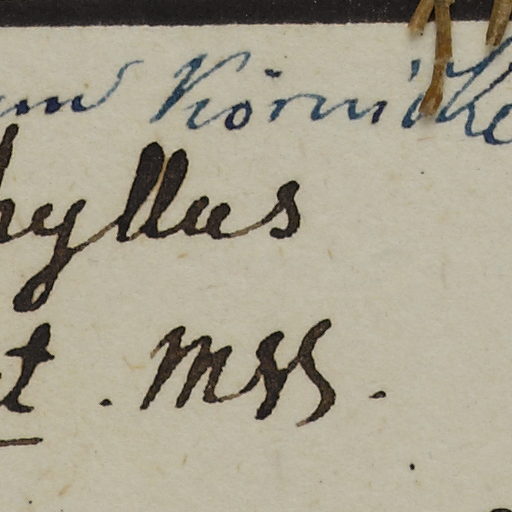 Körnicke
hyllus
t. MSS.